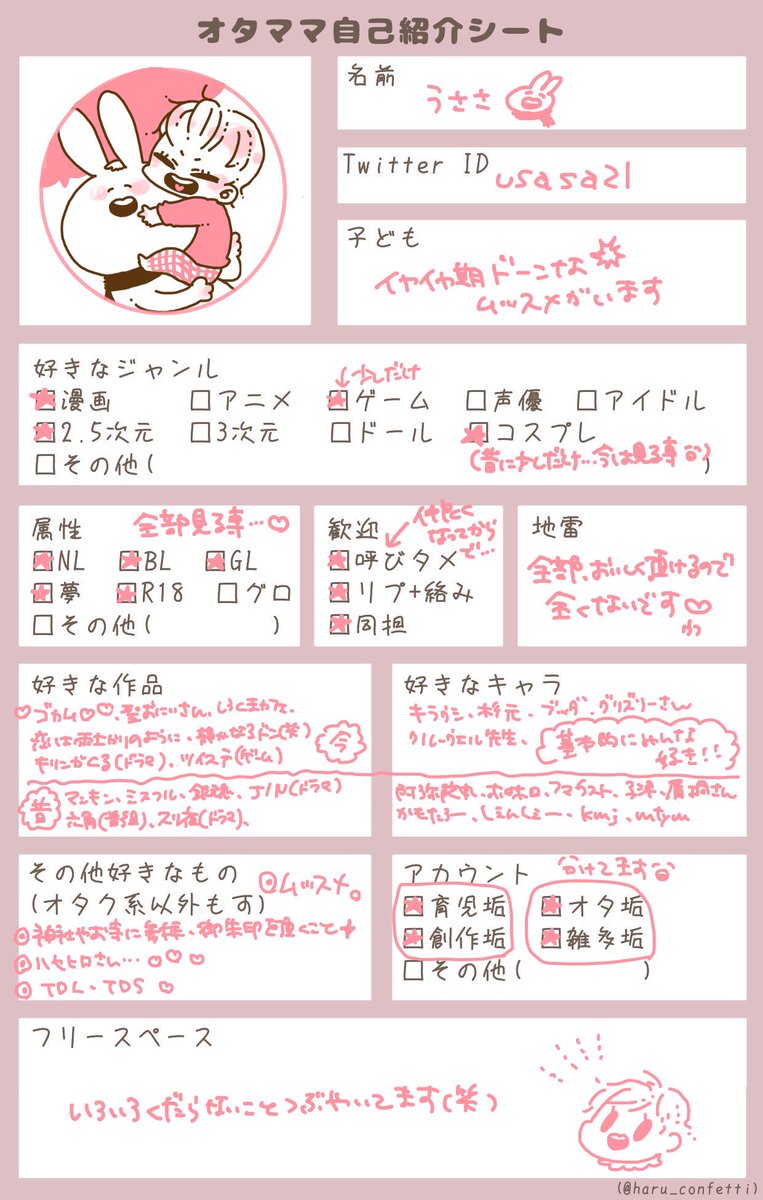 オタママ自己紹介シート
名前
うささ
Twitter ID
usasa21
子ども
イヤイヤ期ドーンな
ムッスメがいます
好きなジャンル
↙少しだけ
漫画 □アニメ ゲーム □声優 □アイドル
2.5次元 □3次元 □ドール コスプレ
□その他( )
(昔に少しだけ…今は見る専
属性
全部見る専…♡
NL BL GL
夢 R18 □グロ
□その他( )
歓迎
仲良く
なってから
で…
呼びタメ
リプ+絡み
同担
地雷
全部、おいしく頂けるので
全くないです♡
好きな作品
♡ゴカム♡♡、聖おにいさん、しろくまカフェ、
恋は雨上がりのように、静かなるドン(笑)
きりがくる(ドラマ)、ツイステ(ゲーム)
今
昔
マンキン、ミスフル、銀魂、JIN(ドラマ)
好きなキャラ
キラウシ、杉元、ブッダ、グリズリーさん
クルーウェル先生、
基本的にみんな
好き!!
阿弥陀丸、ホロホロ、ファウスト、子津、屑桐さん
かもたろー、しんしょー、kmj、mtym
その他好きなもの
(オタク系以外も可)
◎ムッスメ。
◎神社やお寺に参拝、御朱印を頂くこと
◎ハセヒロさん…♡♡♡
◎TDL・TDS♡
アカウント
分けてます
育児垢 オタ垢
創作垢 雑多垢
□その他( )
フリースペース
いろいろくだらないことつぶやいてます(笑)
(@haru_confetti)